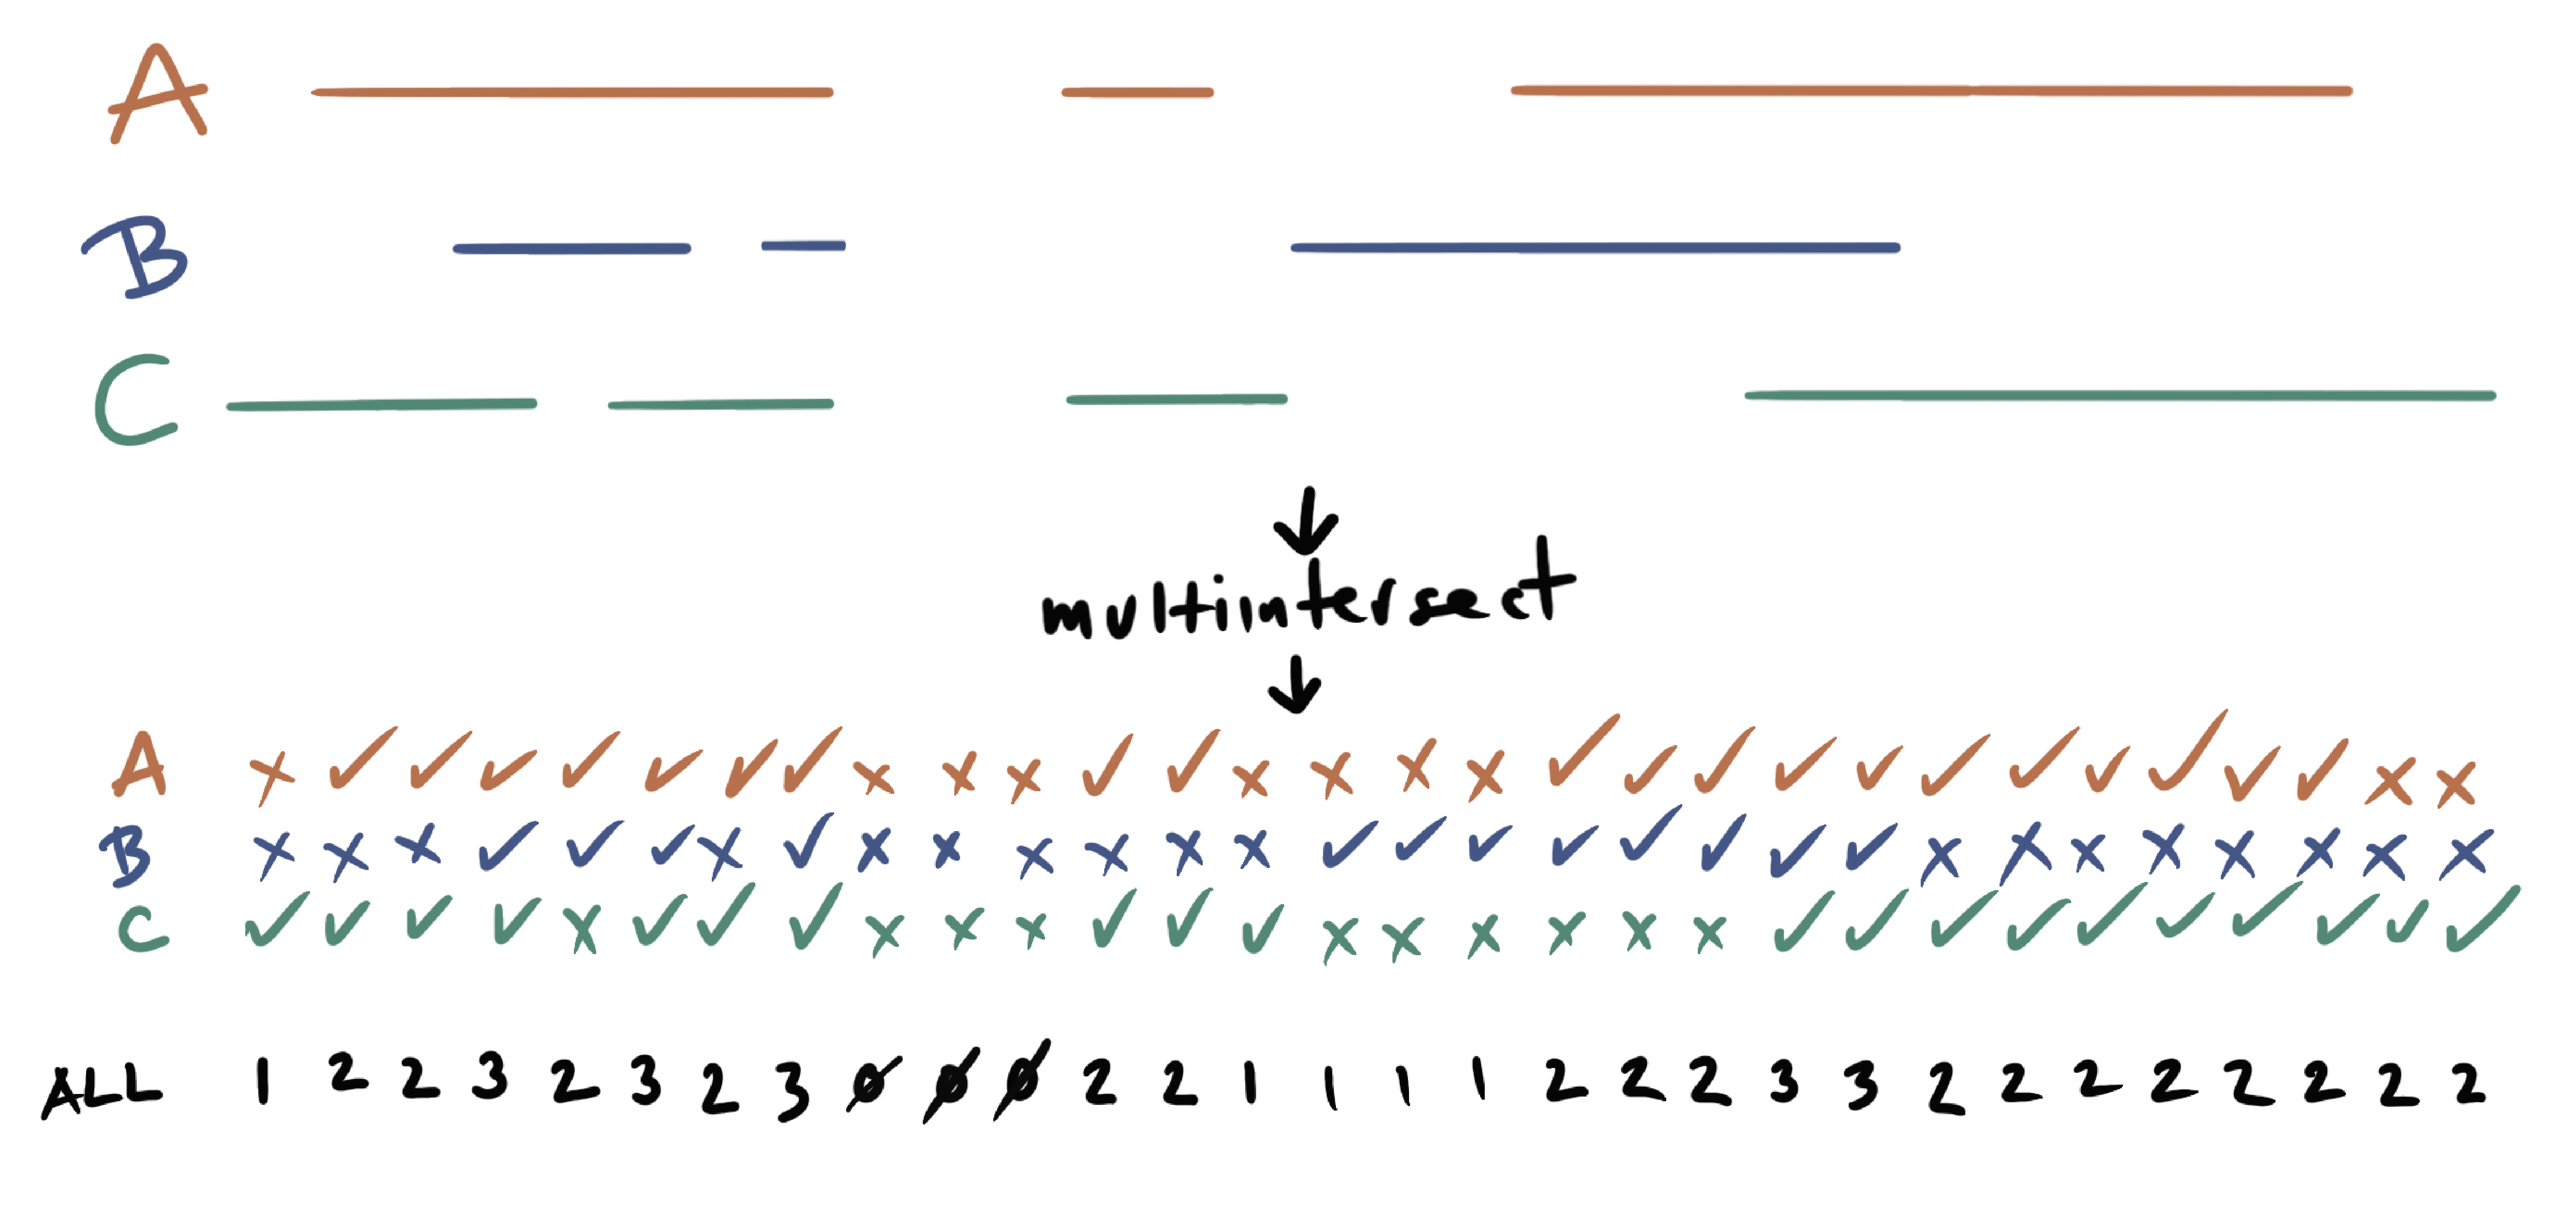 A
B
C
↓
multiintersect
↓
A × ✓ ✓ ✓ ✓ ✓ ✓ ✓ × × × ✓ ✓ × × × × ✓ ✓ ✓ ✓ ✓ ✓ ✓ ✓ ✓ ✓ ✓ × ×
B × × × ✓ ✓ ✓ × ✓ × × × × × × ✓ ✓ ✓ ✓ ✓ ✓ ✓ ✓ × × × × × × × ×
C ✓ ✓ ✓ ✓ × ✓ ✓ ✓ × × × ✓ ✓ ✓ × × × × × × ✓ ✓ ✓ ✓ ✓ ✓ ✓ ✓ ✓ ✓
ALL 1 2 2 3 2 3 2 3 Ø Ø Ø 2 2 1 1 1 1 2 2 2 3 3 2 2 2 2 2 2 2 2